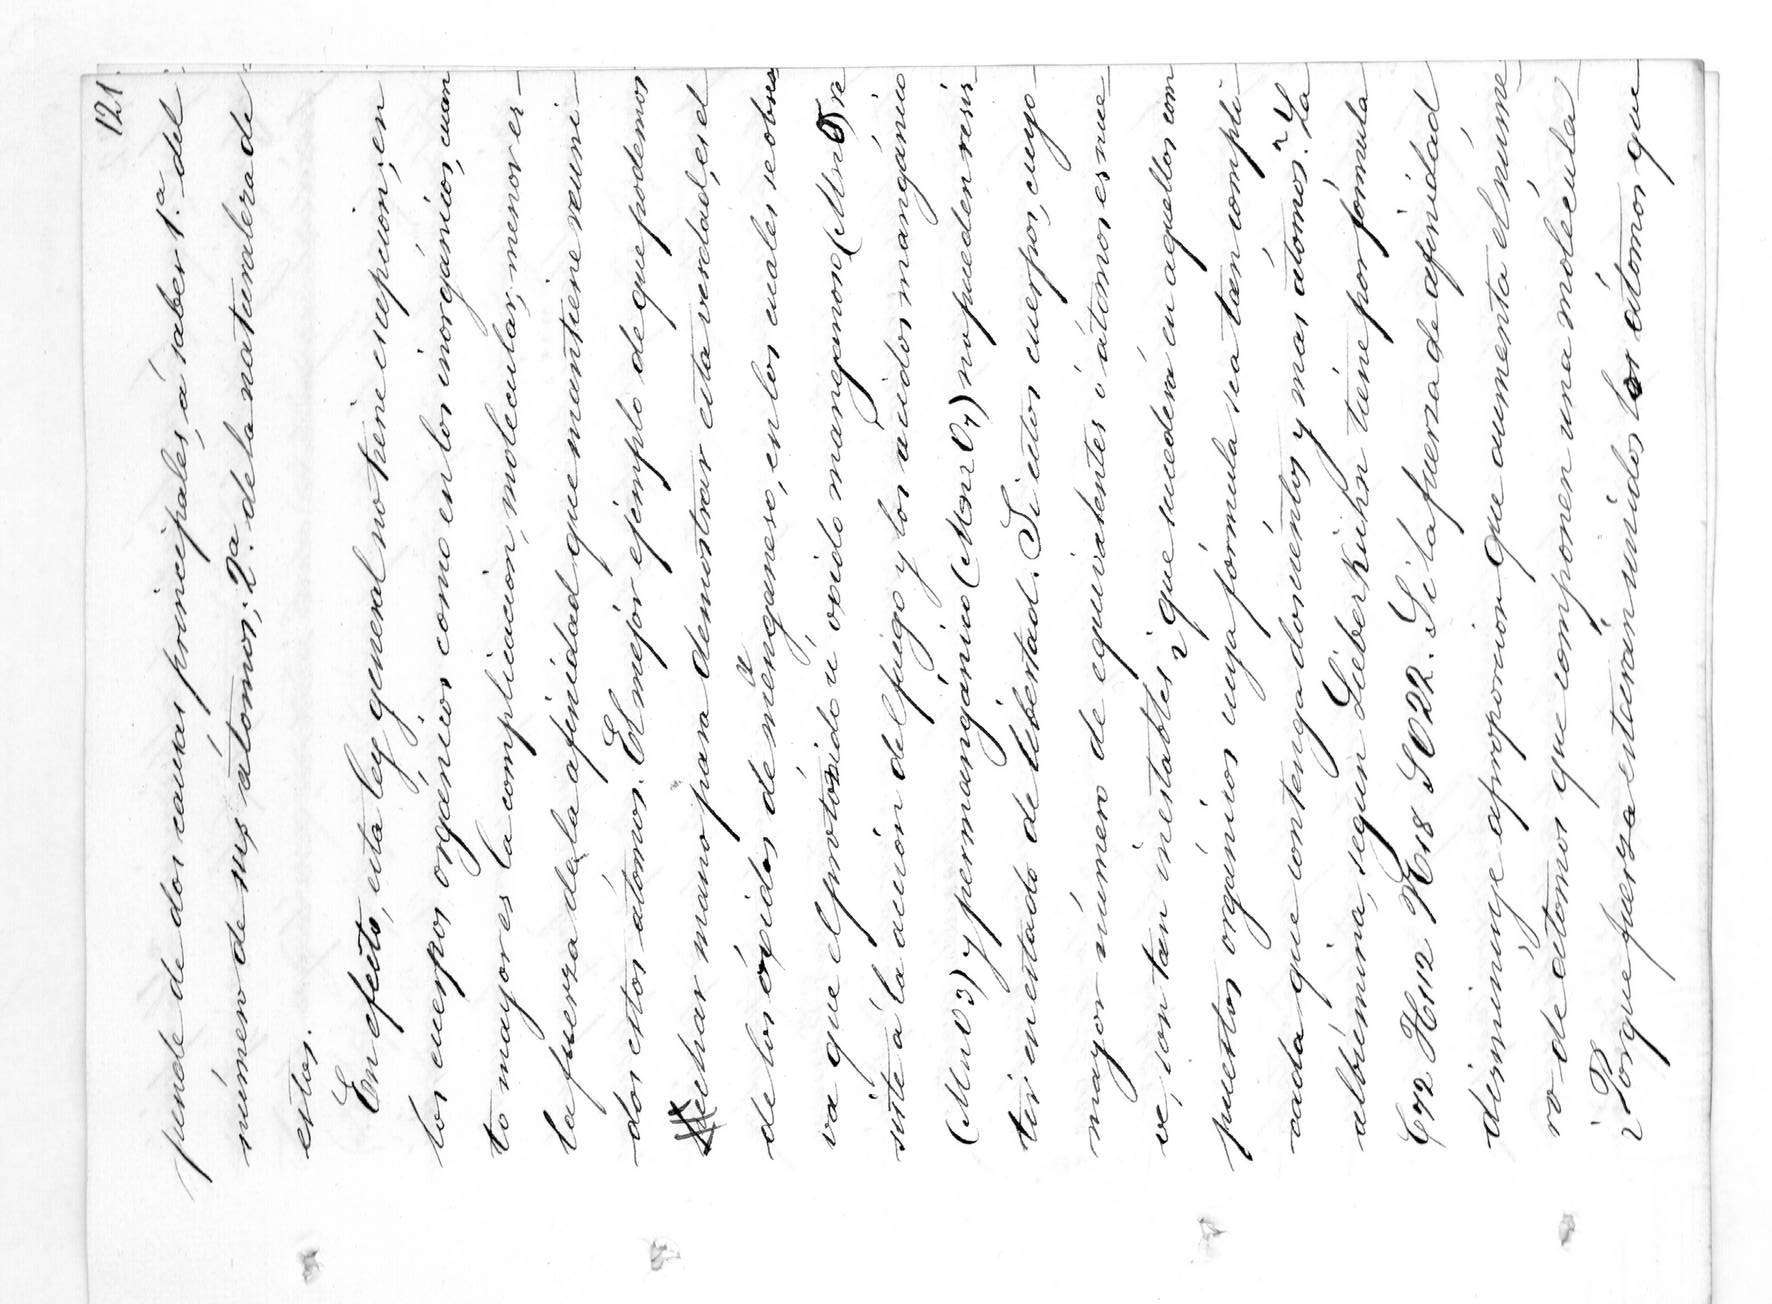 121
pende de dos causas principales, á saber 1.a del
número de sus átomos; 2.a de la naturaleza de
estos.
En efecto, esta ley general no tiene escepcion, en
los cuerpos orgánicos como en los inorgánicos, cuan
to mayor es la complicacion, molecular, menor es
la fuerza de la afinidad que mantiene reuni
dos estos átomos. El mejor ejemplo de que podemos
echar mano para demostrar esta verdad, es el
de los óxidos de manganeso, en los cuales se obser
va que el protóxido ú oxido manganoso (MnO re
siste á la acción del fuego y los acidos manganico
(MnO3) y permangánico (Mn2O7) no pueden resis
tir en estado de libertad. Si estos cuerpos, cuyo
mayor número de equivalentes ó átomos es nue
ve, son tan inestables ¿que sucederá en aquellos com
puestos orgánicos cuya fórmula sea tan compli
cada que contenga doscientos y mas átomos? Y La
albúmina, segun Lieberkühn tiene por fórmula
C72 H112 N18 SO22. Si la fuerza de afinidad
disminuye á proporcion que aumenta el núme
ro de átomos que componen una molécula
¿Por que fuerza estarán unidos los átomos que